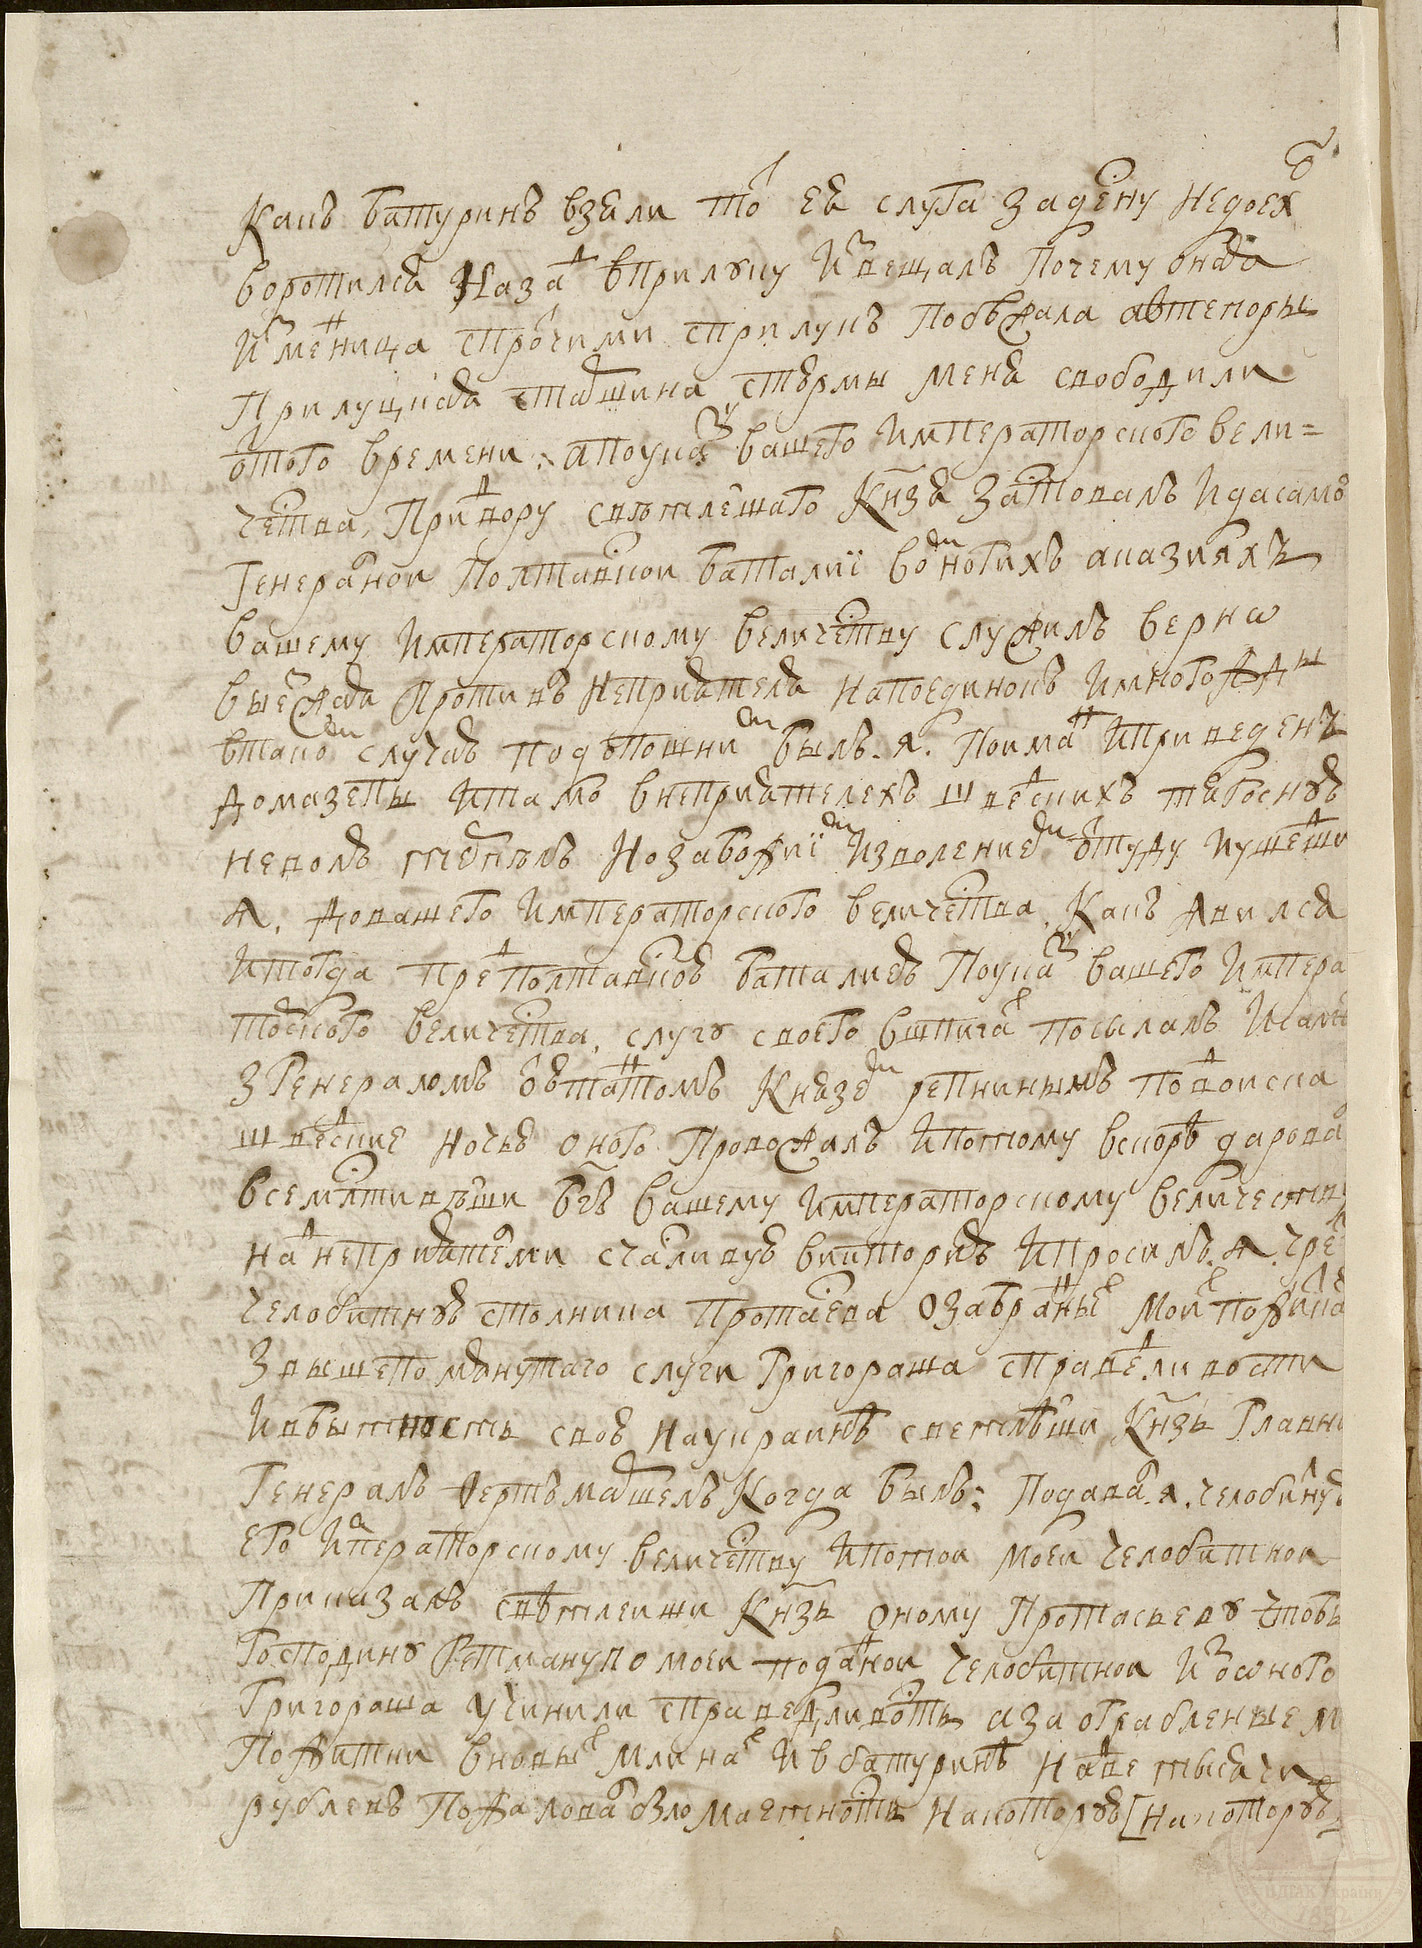 какъ батуринъ взяли то ея слуга задѣну недоех
воротился Назад вприлуку И вещалъ Почему оная
Изменица спрочими сприлукъ Побѣжала автепоры
Прилуцкая старшина стюрмы меня свободили
отого времени. апоуказу вашего Императорского вели=
чества, При двору свѣтлешаго Кнзя Заставалъ Идасамой
Генералной Полтавской баталиї во многихъ аказияхъ
вашему Императорскому величеству служилъ верно
выежжая Противъ Неприятеля напоединокъ Имногожды
втакой случай подъпошний былъ. я. Поиман Иприведенъ
домазепы Итамо внеприятелехъ шведскихъ тягоскую
неволю терпѣлъ Нозабожиї Изволениемъ оттуду Иушедши
я. довашего Императорского величества. Какъ явился
Итогда предполтавскою баталиею Поуказу вашего Импера
торского величества. слугу своего вшпигах посылалъ Исамъ
зГенераломъ адютантомъ Княземъ репнинымъ подвоиска
шведские ночью оного Провожалъ Ипотому вскорѣ дарова
всемлстивѣйши бгъ вашему Императорскому величеству
наднеприятелми счасливую викторию Ипросилъ. я. чрез
челобитную столника Протасева Озабраные мои пожитки
Звышепомянутаго слуги Григораша справедливости
Ивбытность свою наукраинѣ светлѣйши Кнзь Главны
Генералъ Фертъмаршелъ Когда былъ: Подавал. я. челобитную
его Императорскому величеству Ипотой моей челобитной
Приказалъ свѣтлейши Кнзь оному Протасьеву чтобы
Господину Гетману по моей поданой челобитной Изоного
Григораша учинили справедливость аза ограбленые м
Пожитки вновых млинах И в батуринѣ на две тысячи
рублевъ Пожаловал бы маетность Накоторую [накоторую]